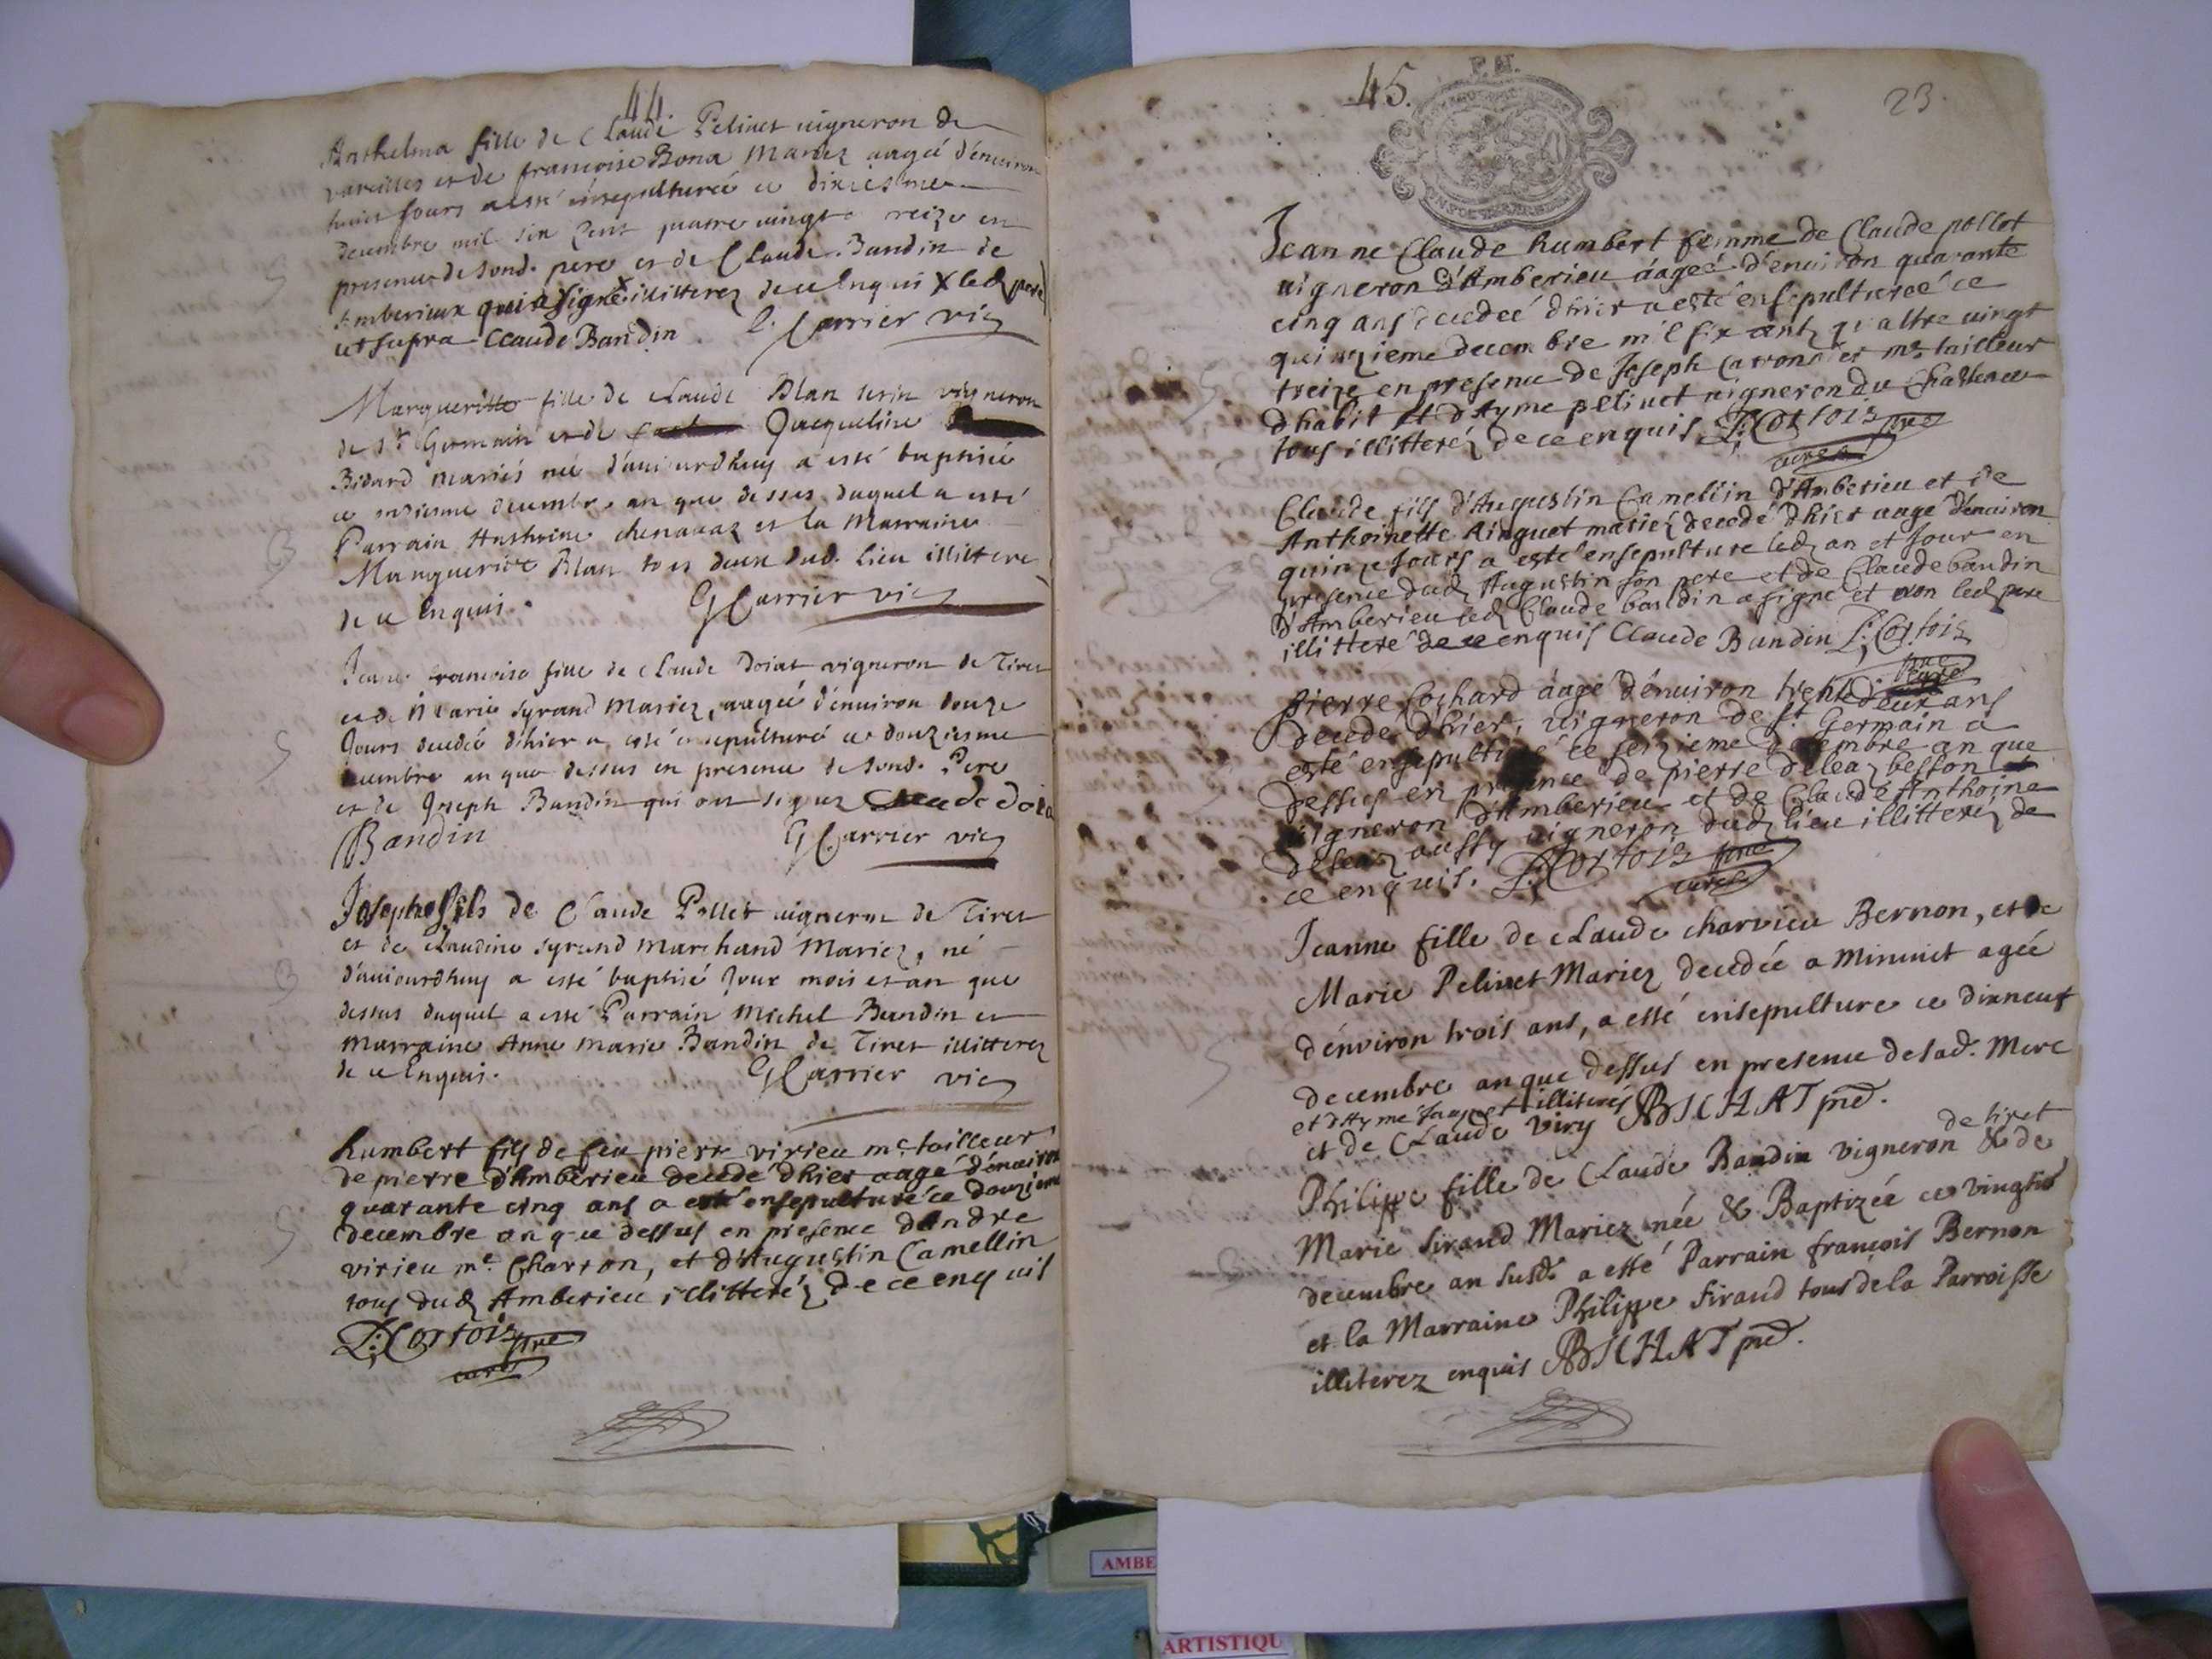 44
Anthelma fille de Claude Pelinet vigneron de
vareilles et de francoise Bona Mariez aagée d'environ
huict Jours a esté ensepulturée ce dixiesme
decembre mil six cent quatre vingt treize en
presence de sond. pere et de Claude Baudin de
Amberieux qui a signé x illitterez de ce Enquis x led pere
ut supra Claude Baudin Carrier vic
Margueritte fille de Claude Blan vigneron
de St Germain et de Jacqueline
Bidard mariés née d'aujourdhuy a esté baptisée
ce onziesme decembre an que dessus duquel a esté
Parrain Anthoine chenavaz et la Marraine
Marguerite Blan tous deux dud. lieu illittere
de ce Enquis. G Carrier vic
Jeane Francoise fille de Claude Doiat vigneron de Tiret
et de Marie Syrand Mariez, aagée d'environ douze
Jours decedée d'hier a esté ensepulturé ce douziesme
decembre an que dessus en presence de sond. Pere
et de Joseph Baudin qui ont signez Claude doia
JBaudin G Carrier vic
Joseph fils de Claude Pollet vigneron de Tiret
et de Claudine Syrand Marchand Mariez, né
d'aujourdhuy a esté baptisé Jour mois et an que
dessus duquel a esté Parrain Michel Baudin et
Marraine Anne Marie Baudin de Tiret illitterez
de ce Enquis. G Carrier vic
humbert fils de feu pierre virieu me tailleur
de pierre d'Amberieu decedé d'hier aagé d'environ
quarante cinq ans a esté ensepulturé ce douzieme
decembre an que dessus en presence d'Andre
virieu me. Charron, et d'Augustin Camellin
tous dud Amberieu illitteréz de ce enquis
L: Cortois pre
curé
45.
23.
Jeanne Claude humbert femme de Claude pollet
vigneron d'Amberieu aageé d'environ quarante
cinq ans decedeé d'hier a esté ensepultureé ce
quinzieme decembre mil six centz quattre vingt
treize en presence de Joseph me tailleur
d'habit et d'Ayme pelinet vigneron du Chasteau
tous illitteréz de ce enquis L: Cortois pre
curé
Claude fils d'Augustin Camellin d'Amberieu et de
Anthoinette Ringuet mariéz decedé d'hier aagé d'environ
quinze Jours a esté ensepulture led an et Jour en
presence dud Augustin son pere et de Claude baudin
d'Amberieu led Claude bauldin a signé et non led pere
illitteré de ce enquis Claude Baudin L: Cortois
pre
curé
pierre Cochard aagé d'environ trente deux ans
decedé d'hier, vigneron de St Germain a
esté ensepulturé ce seizieme decembre an que
dessus en presence de pierre deleaz besson
vigneron d'Amberieu et de Claude Anthoine
deleaz aussy vigneron dud lieu illitteréz de
ce enquis. L: Cortois pre
curé
Jeanne fille de Claude charvieu Bernon, et de
Marie Pelinet Mariez decedée a Minuict agée
d'environ trois ans, a esté ensepulture ce dixneuf
decembre an que dessus en presence de sad. Mere
et d'Ayme illiterés
et de Claude viry BICHAT pred.
de tiret
Philippe fille de Claude Baudin vigneron & de
Marie Siraud Mariez née & Baptizée ce vingtie
decembre an susd. a esté Parrain françois Bernon
et la Marraine Philippe Siraud tous de la Parroisse
illiterez enquis BICHAT pred.
AMBE
ARTISTIQU